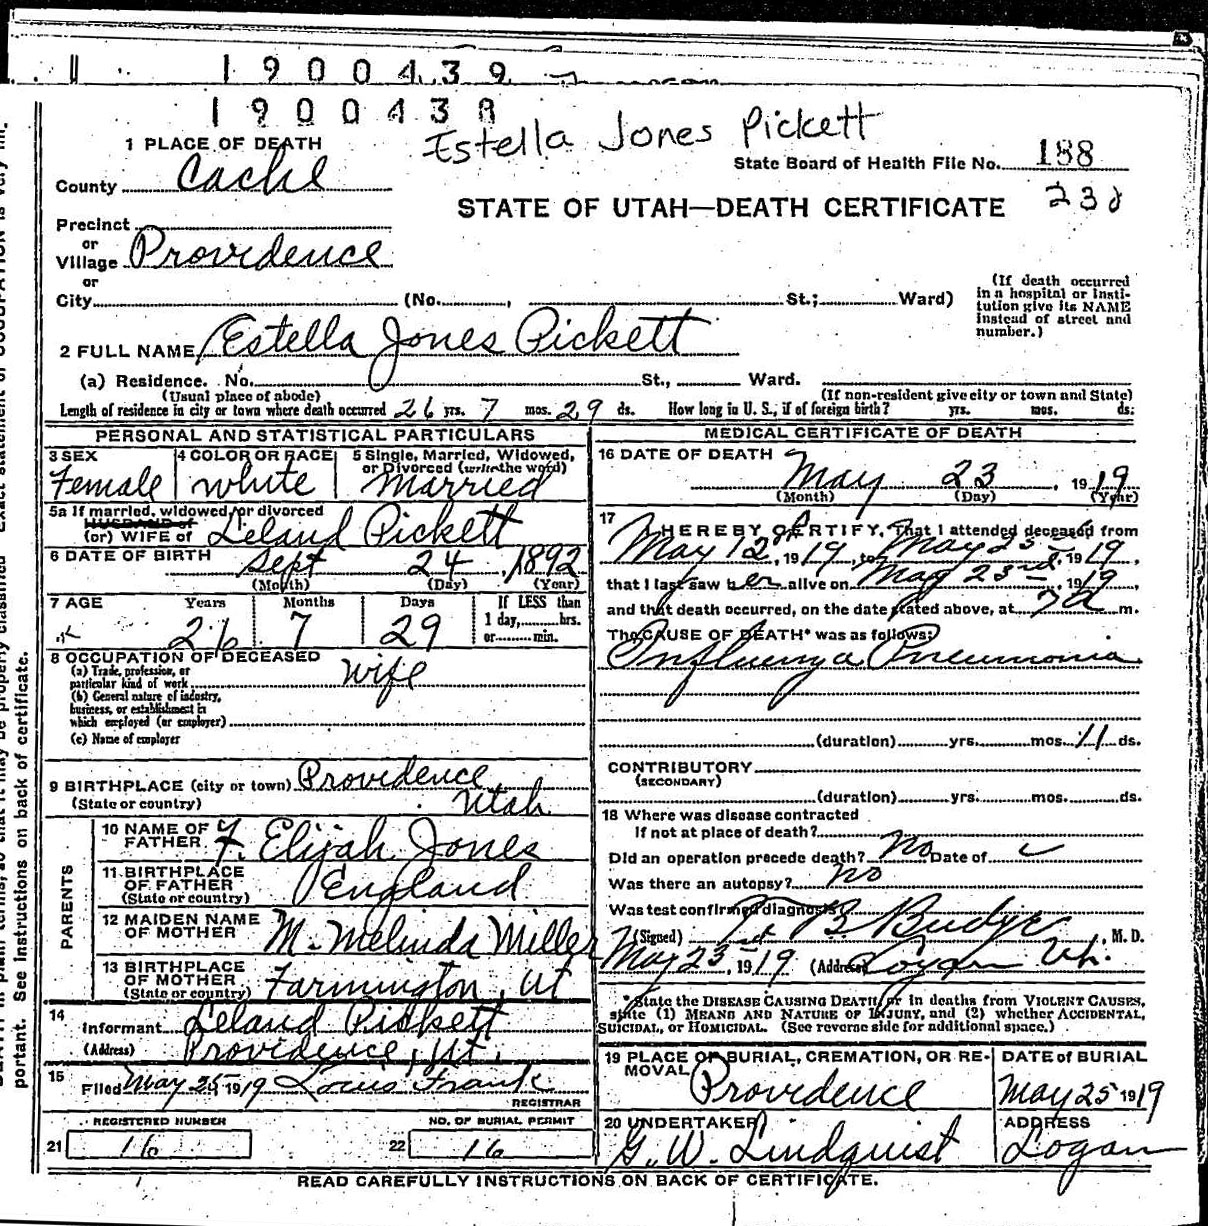 1 9 0 0 4 3 9
1 9 0 0 4 3 8
Estella Jones Pickett
1 PLACE OF DEATH
State Board of Health File No. 188
County Cache
232
STATE OF UTAH—DEATH CERTIFICATE
Precinct
or
Village Providence
or
City (No. , St.; Ward)
(If death occurred
in a hospital or insti-
tution give its NAME
instead of street and
number.)
2 FULL NAME Estella Jones Pickett
(a) Residence. No. St., Ward.
(Usual place of abode) (If non-resident give city or town and State)
Length of residence in city or town where death occurred 26 yrs. 7 mos. 29 ds. How long in U. S., if of foreign birth? yrs. mos. ds.
PERSONAL AND STATISTICAL PARTICULARS
3 SEX
Female
4 COLOR OR RACE
White
5 Single, Married, Widowed,
or Divorced (write the word)
Married
5a If married, widowed, or divorced
HUSBAND of
(or) WIFE of Leland Pickett
6 DATE OF BIRTH Sept 24, 1892
(Month) (Day) (Year)
7 AGE Years Months Days
26 7 29
If LESS than
1 day, hrs.
or min.
8 OCCUPATION OF DECEASED
(a) Trade, profession, or
particular kind of work wife
(b) General nature of industry,
business, or establishment in
which employed (or employer)
(c) Name of employer
9 BIRTHPLACE (city or town) Providence
(State or country) Utah
PARENTS
10 NAME OF
FATHER F. Elijah Jones
11 BIRTHPLACE
OF FATHER England
(State or country)
12 MAIDEN NAME
OF MOTHER M. Melinda Miller
13 BIRTHPLACE
OF MOTHER
(State or country) Farmington, Ut
14
Informant Leland Pickett
(Address) Providence, Ut.
15
Filed May 25, 1919 Louis Frank
REGISTRAR
REGISTERED NUMBER
21 16
NO. OF BURIAL PERMIT
22 16
MEDICAL CERTIFICATE OF DEATH
16 DATE OF DEATH
May 23, 1919
(Month) (Day) (Year)
17
I HEREBY CERTIFY, That I attended deceased from
May 12, 1919, to May 23, 1919,
that I last saw her alive on May 23rd, 1919,
and that death occurred, on the date stated above, at 7 a m.
The CAUSE OF DEATH* was as follows:
Influenza Pneumonia
(duration) yrs. mos. 11 ds.
CONTRIBUTORY
(SECONDARY)
(duration) yrs. mos. ds.
18 Where was disease contracted
If not at place of death?
Did an operation precede death? No Date of
Was there an autopsy? No
Was test confirmed diagnosis?
(Signed) T B Budge, M. D.
May 23rd, 1919 (Address) Logan Ut.
*State the DISEASE CAUSING DEATH, or in deaths from VIOLENT CAUSES,
state (1) MEANS AND NATURE OF INJURY, and (2) whether ACCIDENTAL,
SUICIDAL, or HOMICIDAL. (See reverse side for additional space.)
19 PLACE OF BURIAL, CREMATION, OR RE-
MOVAL
Providence
DATE of BURIAL
May 25 1919
20 UNDERTAKER
G. W. Lindquist
ADDRESS
Logan
READ CAREFULLY INSTRUCTIONS ON BACK OF CERTIFICATE.
portant. See instructions on back of certificate.